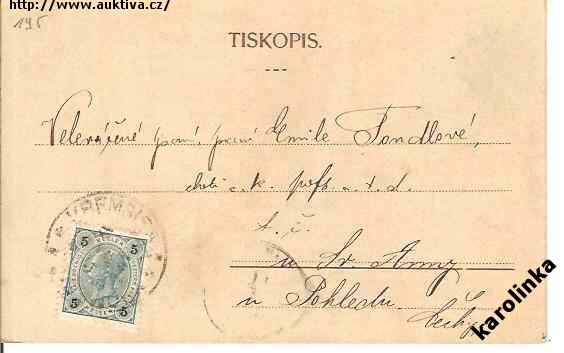 http://www.auktiva.cz/
195
TISKOPIS.
Velevážené paní, paní Emile Fondlové,
choti c. k. prof. a. t. d.
t. č.
u Sv. Anny
u Pohledu. Čechy
5 5
5 5
karolinka